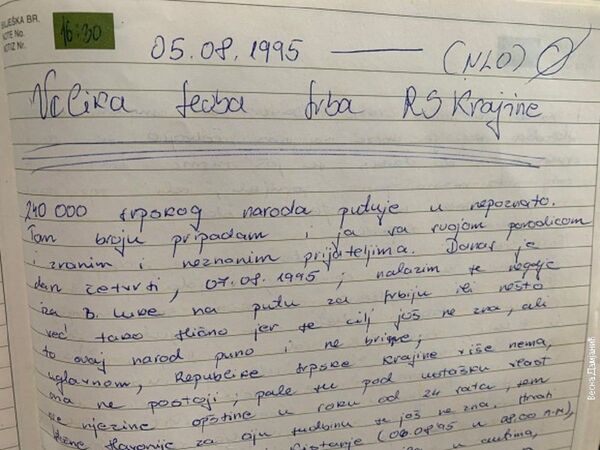 BILJEŠKA BR.
NOTE No.
NOTIZ Nr.
16:30
05.08.1995 (NLO)
Velika seoba Srba RS Krajine
240 000 srpskog naroda putuje u nepoznato.
Tom broju pripadam i ja sa svojom porodicom
i znanim i neznanim prijateljima. Danas je
dan četvrti, 07.08.1995, nalazim se negdje
iza B. Luke na putu za Srbiju ili nešto
već tako slično jer se cilj još ne zna, ali
to ovaj narod puno i ne brine,
uglavnom, Republike Srpske Krajine više nema,
ona ne postoji, pale su pod ustašku vlast
sve njezine opštine u roku od 24 sata, sem
Slavonije za čiju sudbinu se još ne zna.
(06.08.95 u
Весна Дамјанић